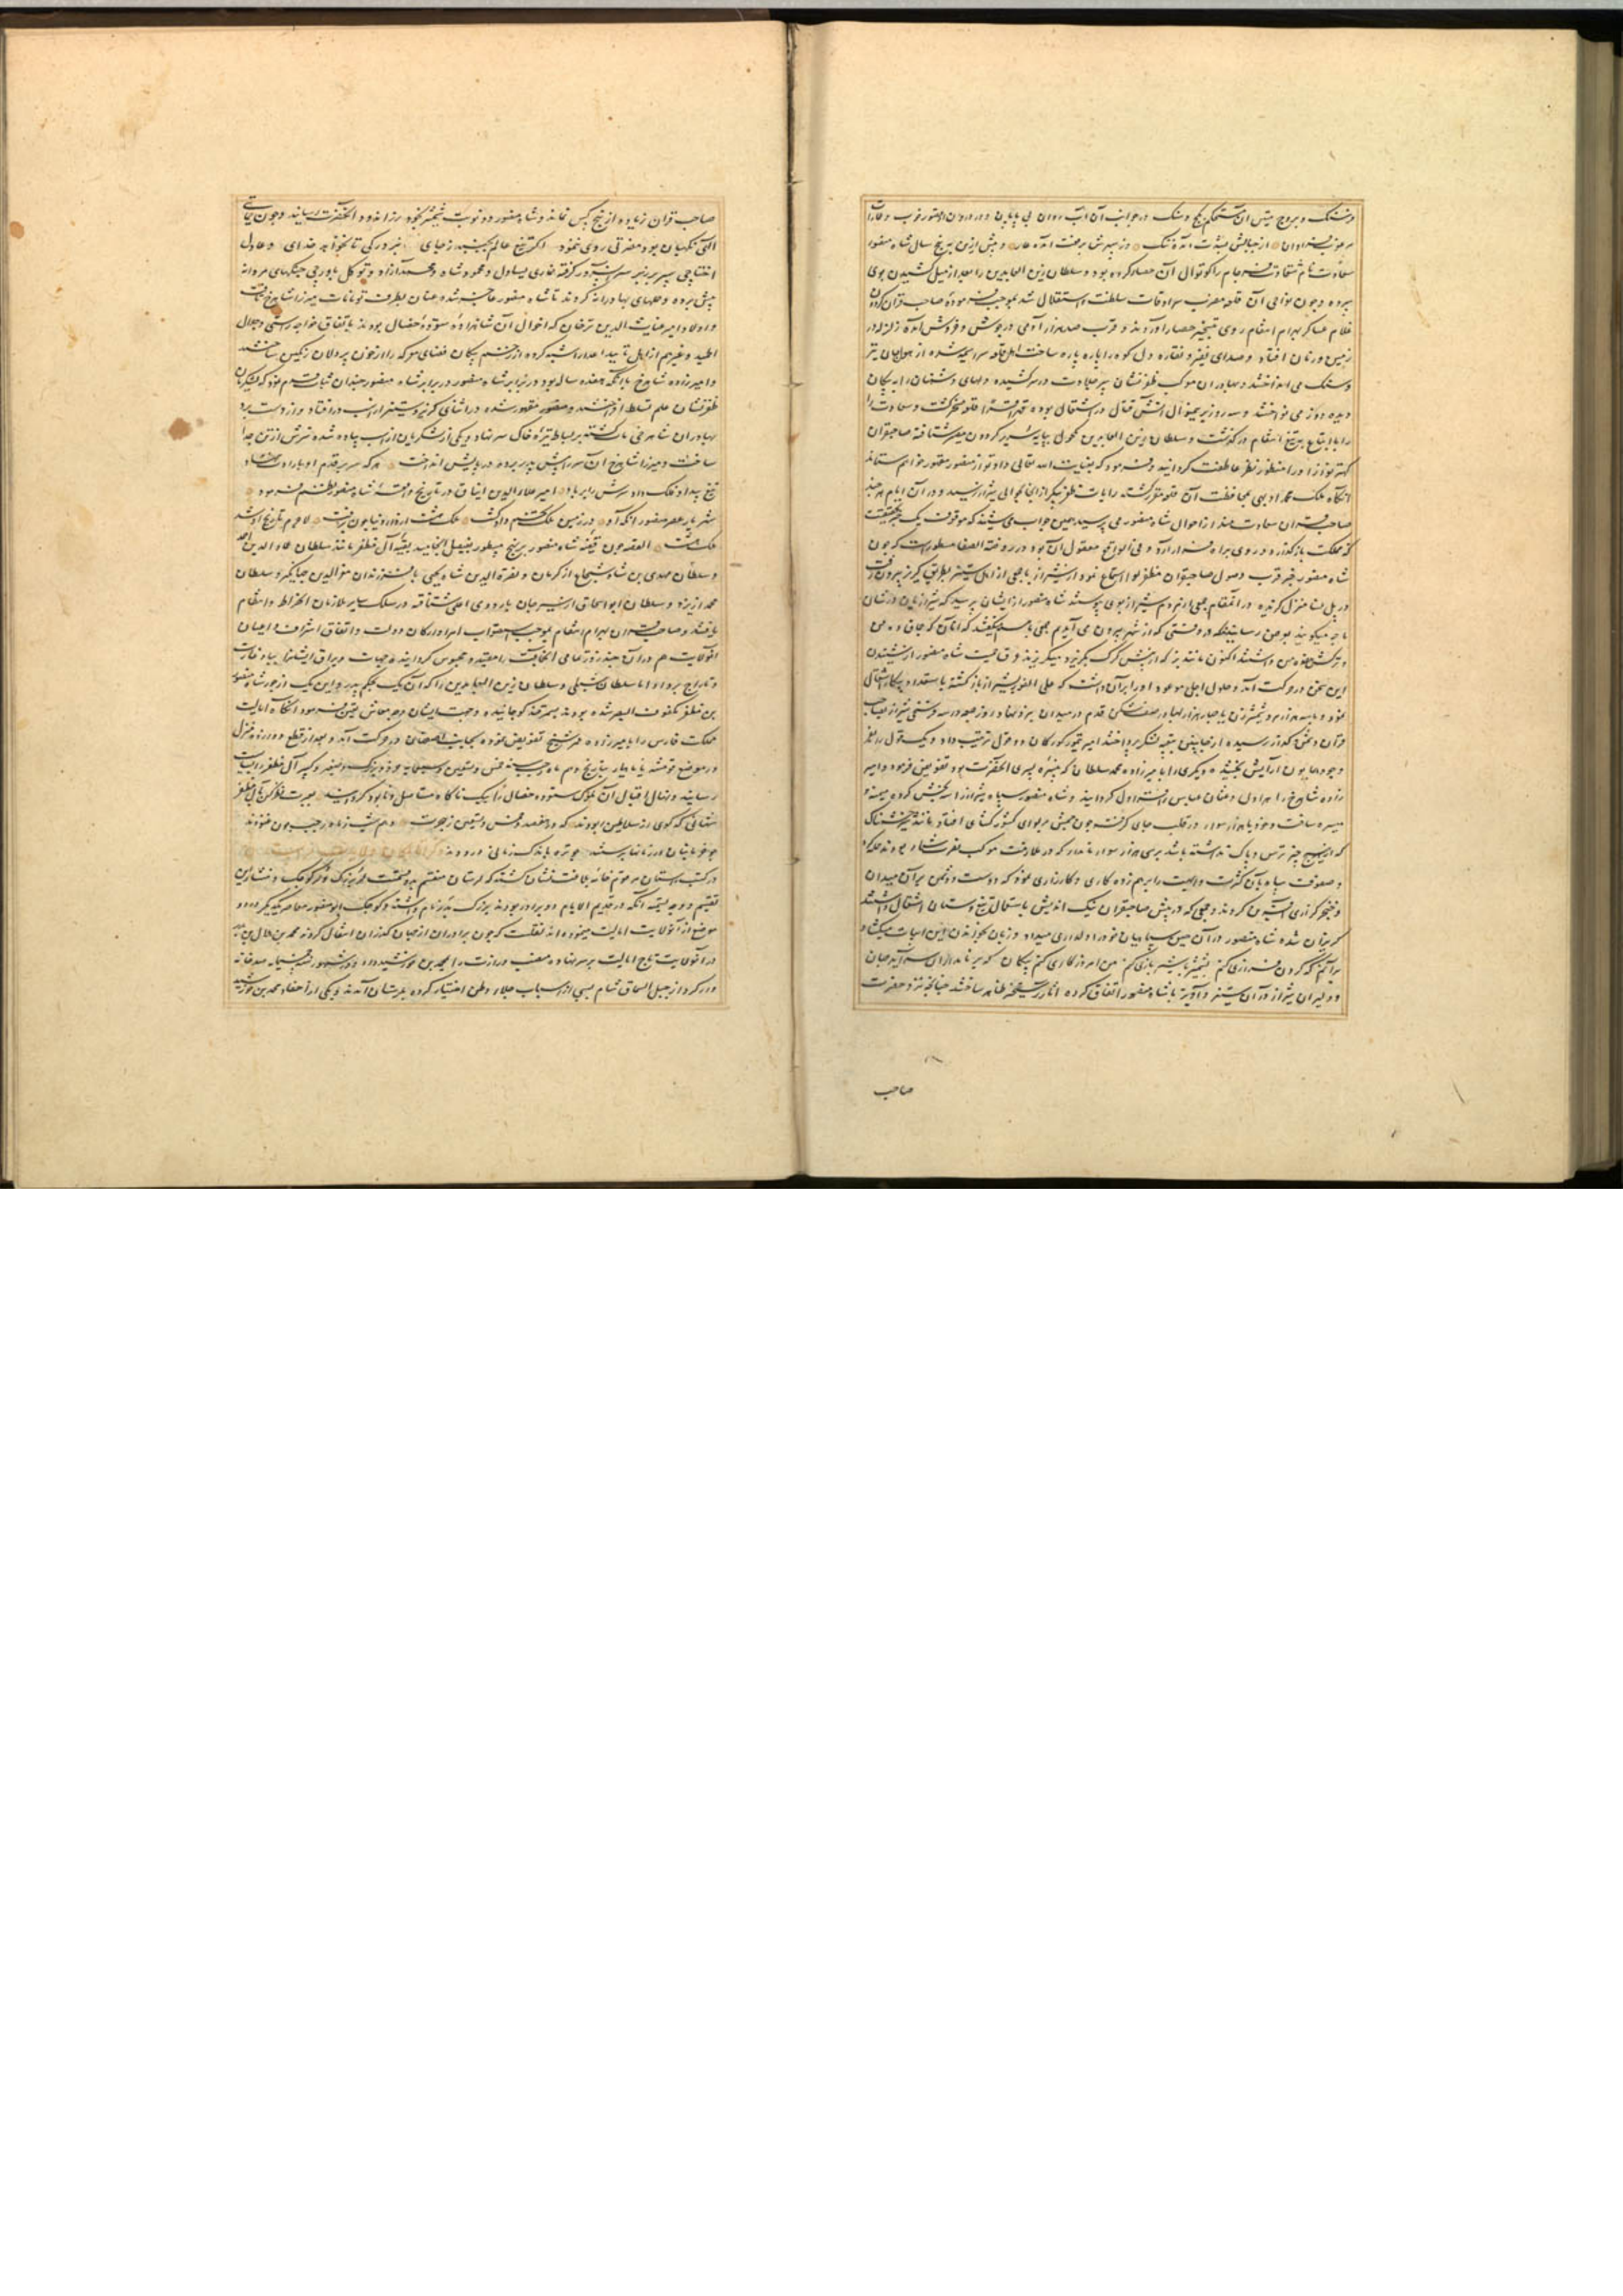 و سنگ و بروج متین آن مستحکم و در جوانب آن آب روان بی پایان
از جبالش
سعادت نام شقاوت فرجام را کوتوال آن حصار کرده بود و سلطان زین العابدین را بعد از میل کشیدن بوی
سپرده و چون نواحی آن قلعه مضرب سرادقات سلطنت و استقلال شد بموجب فرموده صاحب قران
غلام عساکر بهرام انتقام روی بتسخیر حصار آوردند و قرب صد هزار آدمی در جوش و خروش آمده زلزله در
زمین و زمان افتاد و صدای نفیر و نقاره دل کوه را پاره پاره ساخت اهل قلعه سراسیمه شده از هوا جهان تیر
و سنگ می انداختند و بهادران موکب ظفر نشان سپر جلادت در سر کشیده دلهای دشمنان را به پیکان
دیده دوز می نواختند و سه روز برینمنوال آتش قتال در اشتعال بوده قلعه مسخر گشت و سعادت را
با اتباع به تیغ انتقام در گذشت و سلطان زین العابدین مکحول بپایه سریر گردون مصیر شتافته صاحبقران
کهتر نواز او را منظور نظر عاطفت گردانید و فرمود که بعنایت الله تعالی داد تو از منصور مقهور خواهم ستاند
آنگاه ملک محمد بمحافظت آن قلعه مقرر گشته رایات ظفر پیکر از آن حوالی بشیراز رسید و در آن ایام هر چند
صاحب قران سعادتمند از احوال شاه منصور می پرسید همین جواب می شنید که
مملکت باز گذارد و روی براه فرار آرد و فی الواقع معقول آن بود و در روضة الصفا مسطور است که چون
شاه منصور خبر قرب وصول صاحبقران مظفر لوا استماع نمود از شیراز با جمعی از اهل ستیز بطریق گریز بیرون رفت
در پل فسا منزل گزیده در آنمقام جمعی از مردم شیراز بوی پیوستند شاه منصور از ایشان پرسید که شیرازیان در شان
ما چه میگویند بعرض رسانیدند که در وقتی که از شهر بیرون می آمدیم بعضی با هم میگفتند که آنان که چماق ده منی
و ترکش هفده منی داشتند اکنون مانند بز که از پیش گرگ بگریزد میگریزند رگ حمیت شاه منصور از شنیدن
این سخن در حرکت آمد و حلول اجل موعود او را بر آن داشت که علی الفور بشیراز باز گشته باستعداد پیکار اشتغال
نمود و با سه هزار مرد شمشیر زن یا چهار هزار بهادر صف شکن قدم در میدان نبرد نهاد و روز جمعه در سه فرسخی شیراز بصاحب
قران دشمن گداز رسیده از جانبین بتعبیه لشکر پرداختند امیر تیمور گورکان دو غول ترتیب داد و یک غول را بفر
وجود همایون آرایش بخشیده و دیگری را بامیرزاده محمد سلطان که نبیره پسری آنحضرت بود تفویض فرمود و امیر
زاده شاهرخ را هراول و عثمان عباس را قراول گردانید و شاه منصور سپاه شیراز را سه بخش کرده میمنه و
میسره ساخت و خود با هزار سوار در قلب جای گرفت چون چشم بر لوای کشور گشای افتاد مانند شیر خشمناک
که از هیچ چیز ترس و باک نداشته باشد بر سی هزار سوار نامدار که در ملازمت موکب نصرت شعار بودند حمله کرد
و صفوف سپاه بآن کثرت و اهبت را بر هم زده کاری و کارزاری نمود که دوست و دشمن بر آن میدان
و خنجر گزاری آفرین کردند و جمعی که در پیش صاحبقران نیک اندیش باستعمال تیغ و سنان اشتغال داشتند
گریزان شده شاه منصور در آن حین سپاهیان خود را دلداری میداد و زبان بخواندن این ابیات میگشاد
برآنم که گردن فرازی کنم بشمشیر با شیر بازی کنم من امروز کاری کنم با پیکان که بر نامداران سر آید جهان
و دلیران شیراز در آن ستیز و آویز با شاه منصور اتفاق کرده آثار رستخیز ظاهر ساختند چنانچه نزد حضرت
صاحب
صاحب قران زیاده از پنج کس نماند و شاه منصور دو نوبت شمشیر بخود رزاندود آنحضرت رسانید و چون حمایت
الهی نگهبان بود مضرتی روی ننمود اگر تیغ عالم بجنبد ز جای نبرد رگی تا نخواهد خدای و عادل
اختاجی سپر بر زبر سر آن سرور گرفته قماری یساول و محمود شاه و محمد آزاد و توکل باورچی جنگهای مردانه
پیش برده و حملهای بهادرانه کردند تا شاه منصور عاجز شده عنان بطرف قومانات میرزا شاهرخ تافت
و اولاد امیر غیاث الدین ترخان که اخوال آن شاهزاده ستوده خصال بودند باتفاق خواجه راستی و جلال
الحمید و غیرهم از اهل تأیید اعدا را شیبه کرده از زخم پیکان فضای معرکه را از خون پردلان رنگین ساختند
و امیرزاده شاهرخ با آنکه هفده ساله بود در برابر شاه منصور چندان ثبات قدم نمود که لشکریان
ظفر نشان علم تسلط افراختند و منصور مقهور شده در اثنای گریز و ستیز از اسب در افتاد و از دست برد
بهادران شاهرخی مات گشته بر بساط تیره خاک سر نهاد و یکی از لشکریان از اسب پیاده شده سرش از تن جدا
ساخت و میرزا شاهرخ آن سر را پیش پدر برده در پایش انداخت هر که سر بر قدم او بارادت ننهاد
تیغ بیداد فلک داد سرش را بر باد امیر علاء الدین ایناق در تاریخ واقعه شاه منصور نظم فرمود
شهریار عصر منصور آنکه او در زمین ملک تخم داد کشت ملک هشت از دار دنیا چون برفت لاجرم تاریخ او شد
ملک هشت القصه چون قضیه شاه منصور بر نهج مسطور بفیصل انجامید بقیه آل مظفر مانند سلطان عماد الدین احمد
و سلطان مهدی بن شاه شجاع از کرمان و نصرة الدین شاه یحیی با فرزندان معز الدین جهانگیر و سلطان
محمد از یزد و سلطان ابو اسحاق از سیرجان باردوی اعلی شتافته در سلک سایر ملازمان انخراط و انتظام
یافتند و صاحبقران بهرام انتقام بموجب استصواب امرا و ارکان دولت و اتفاق اشراف و اعیان
آنولایت هم در آن چند روز تمامی آنجماعت را مقید و محبوس گردانید و جهات و یراق ایشان بباد غارت
و تاراج بر داد اما سلطان شبلی و سلطان زین العابدین را که آن یک بحکم پدر و این یک از جور شاه منصور
بن مظفر مکفوف البصر شده بودند بسمرقند کوچانیده وجهت ایشان وجه معاش تعیین فرمود آنگاه ایالت
مملکت فارس را بامیرزاده عمر شیخ تفویض نموده بجانب اصفهان در حرکت آمد و بعد از قطع و ورزند منزل
در موضع قومشه یا ماهیار بتاریخ دهم ماه رجب سنه خمس و تسعین و سبعمایه خرد و بزرگ و صغیر و کبیر آل مظفر را بیاسا
رسانید و نهال اقبال آن ملوک ستوده خصال را بیک ناگاه مستاصل و نابود گردانید بعبرت نظر کن بآل مظفر
شهانی که گوی از سلاطین ربودند که در هفصد و خمس و تسعین ز هجرت دهم شب ز ماه رجب چون غنودند
چو خرما بنان در زمانه برستند چو تره باندک زمانی درودند
در کتب داستان مرقوم خامه بلاغت نشان گشته که لرستان منقسم بدو قسمت لر بزرگ و لر کوچک و منشا این
تقسیم دو وجه تسمیه آنکه در قدیم الایام دو برادر بودند بزرگ بدر نام داشته و کوچک ابو منصور معاصر یکدیگر در دو
موضع از آنولایت ایالت مینموده اند نقلست که چون برادران از جهان گذران انتقال کردند محمد بن هلال بن بدر
در آنولایت تاج ایالت بر سر نهاده منصب وزارت را بمحمد بن خورشید داد و در شهور سنه خمسمایه صد خانه
وار کرد از جبل السماق شام بسبی از اسباب جلاء وطن اختیار کرده بلرستان آمدند و یکی از احفاد محمد بن خورشید